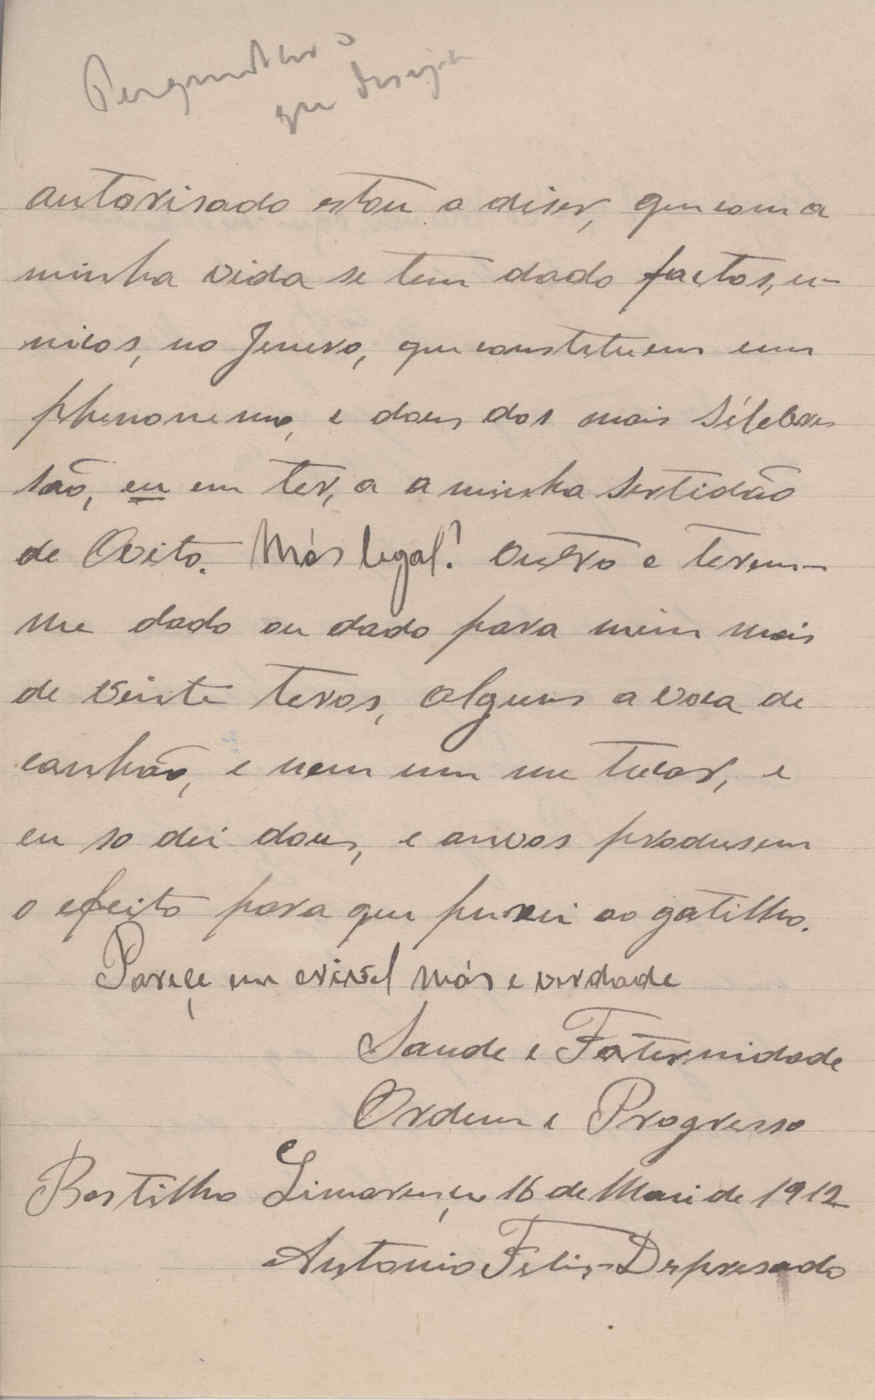 Perguntar o
que deseja
autorisado estou a diser, que com a
minha vida se tem dado factos, u-
nicos, no Jenero, que constituem um
phenonemo, e dous dos mais sélebres
são, eu em ter, a a minha sertidão
de Ovito. Más legal! Outro e terem-
me dado ou dado para mim mais
de vinte teros, alguns a voca de
canhão, e nem um me tucar, e
eu so dei dous, e anvos produsem
o efeito para que puxei ao gatilho.
Pareçe um crivel más e verdade
Saude e Faternidade
Ordem e Progresso
Bostilho Limarense 16 de Mai de 1912
Antonio Felix Depresado